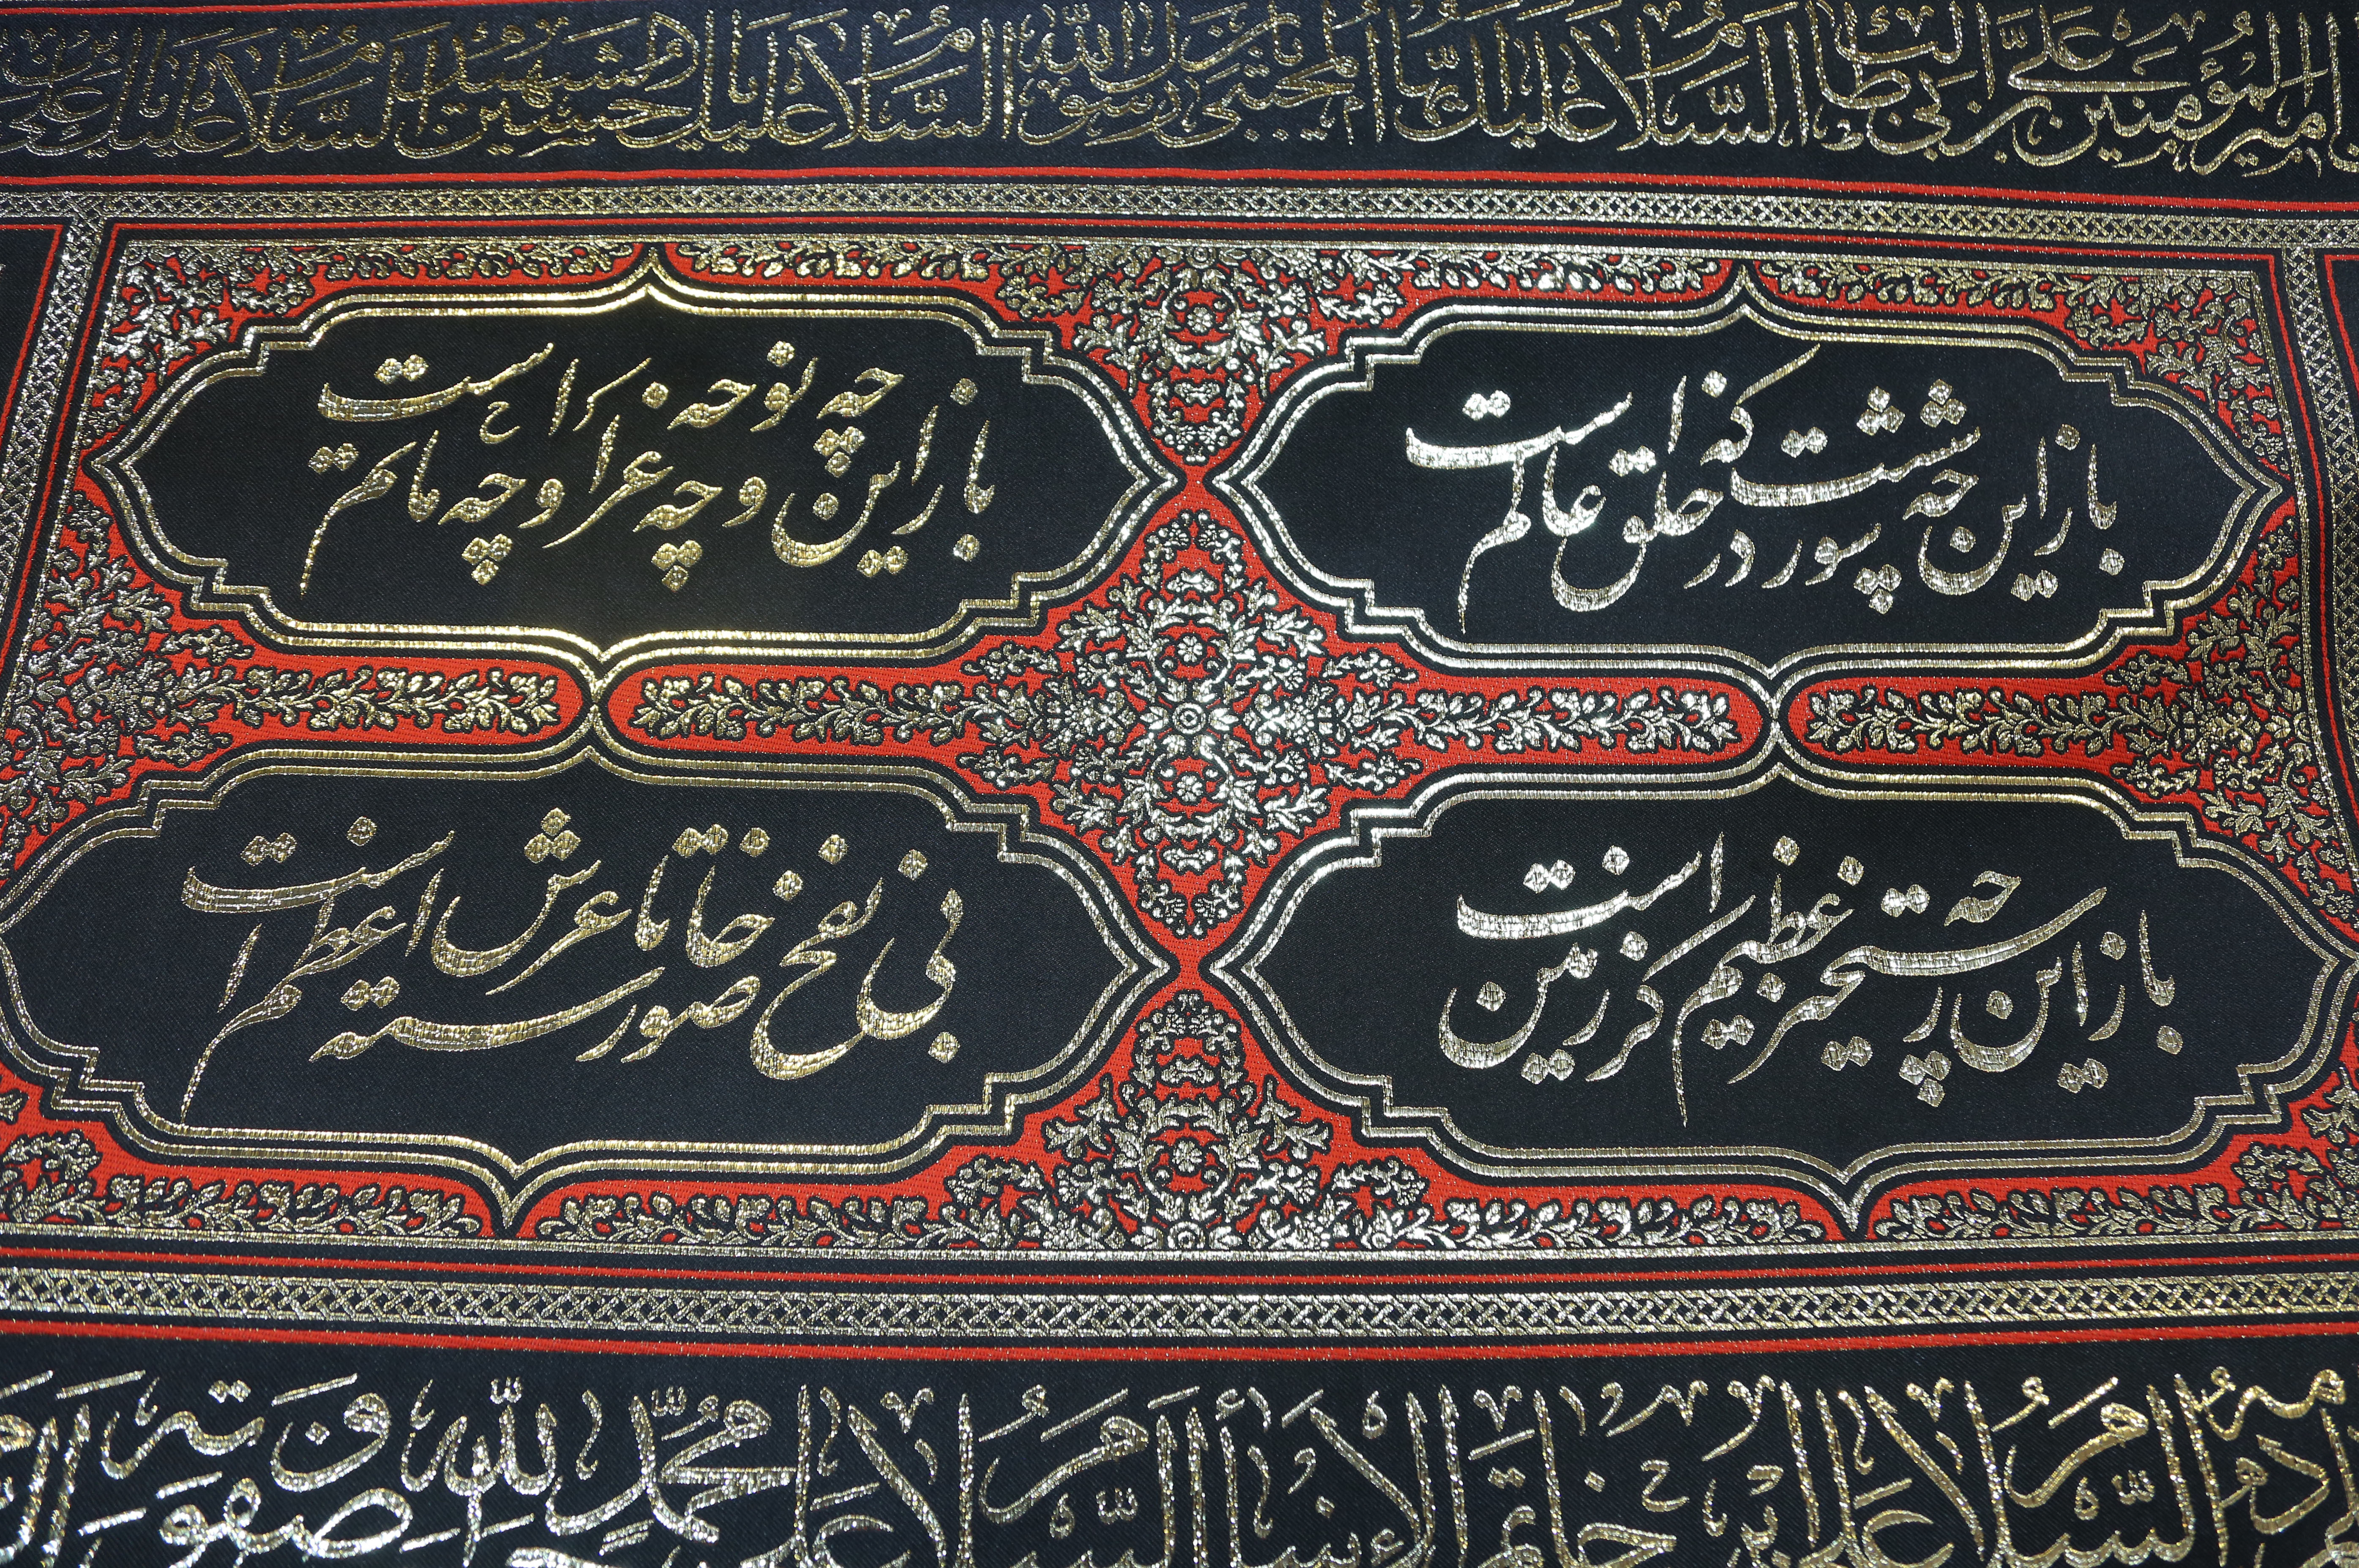 امیر المؤمنین علی بن ابی طالب السلام علیک ایها المجتبی یابن رسول الله السلام علیک یا حسین الشهید السلام علیک یا
باز این چه شورشست که در خلق عالمست
باز این چه نوحه و چه عزا و چه ماتمست
باز این چه رستخیز عظیمست کز زمین
بی نفخ صور خاسته تا عرش اعظمست
السلام علی خاتم الأنبیاء السلام علی محمد